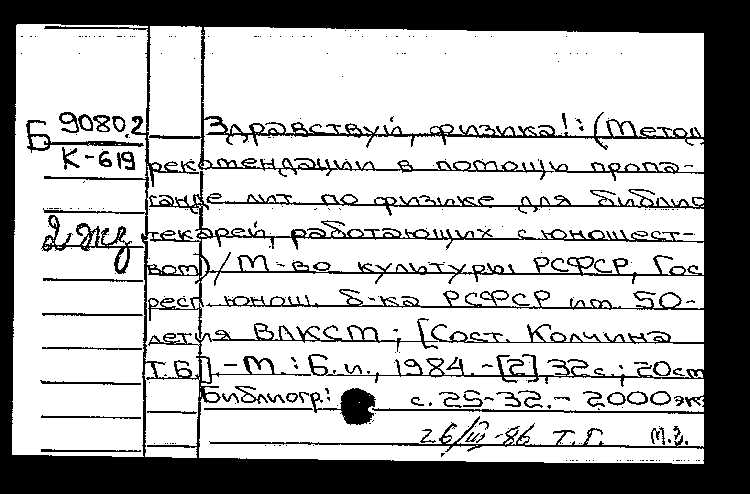 Б 9080.2
К-619
2 экз
Здравствуй, физика!: (Метод
рекомендации в помощи пропа-
ганде лит. по физике для библио
текарей, работающих с юношест-
вом)/М-во культуры РСФСР, Гос
респ. юнош. б-ка РСФСР им. 50-
летия ВЛКСМ; [Сост. Колчина
Т.Б.]. - М.: Б.и., 1984. - [2], 32с.; 20см
Библиогр.: с. 25-32. - 2000экз
26/III-86 Т.Г. М.З.